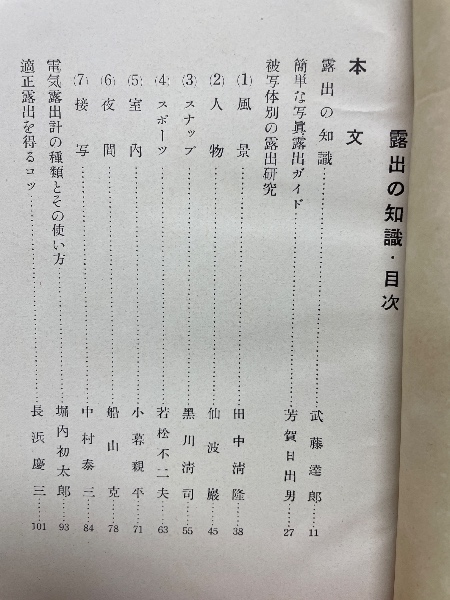 露出の知識・目次
本文
露出の知識……武藤達郎……11
簡単な写眞露出ガイド……芳賀日出男……27
被写体別の露出研究
(1) 風景……田中淸隆……38
(2) 人物……仙波巖……45
(3) スナップ……黒川淸司……55
(4) スポーツ……若松不二夫……63
(5) 室内……小暮親平……71
(6) 夜間……船山克……78
(7) 接写……中村泰三……84
電気露出計の種類とその使い方……堀内初太郎……93
適正露出を得るコツ……長浜慶三……101